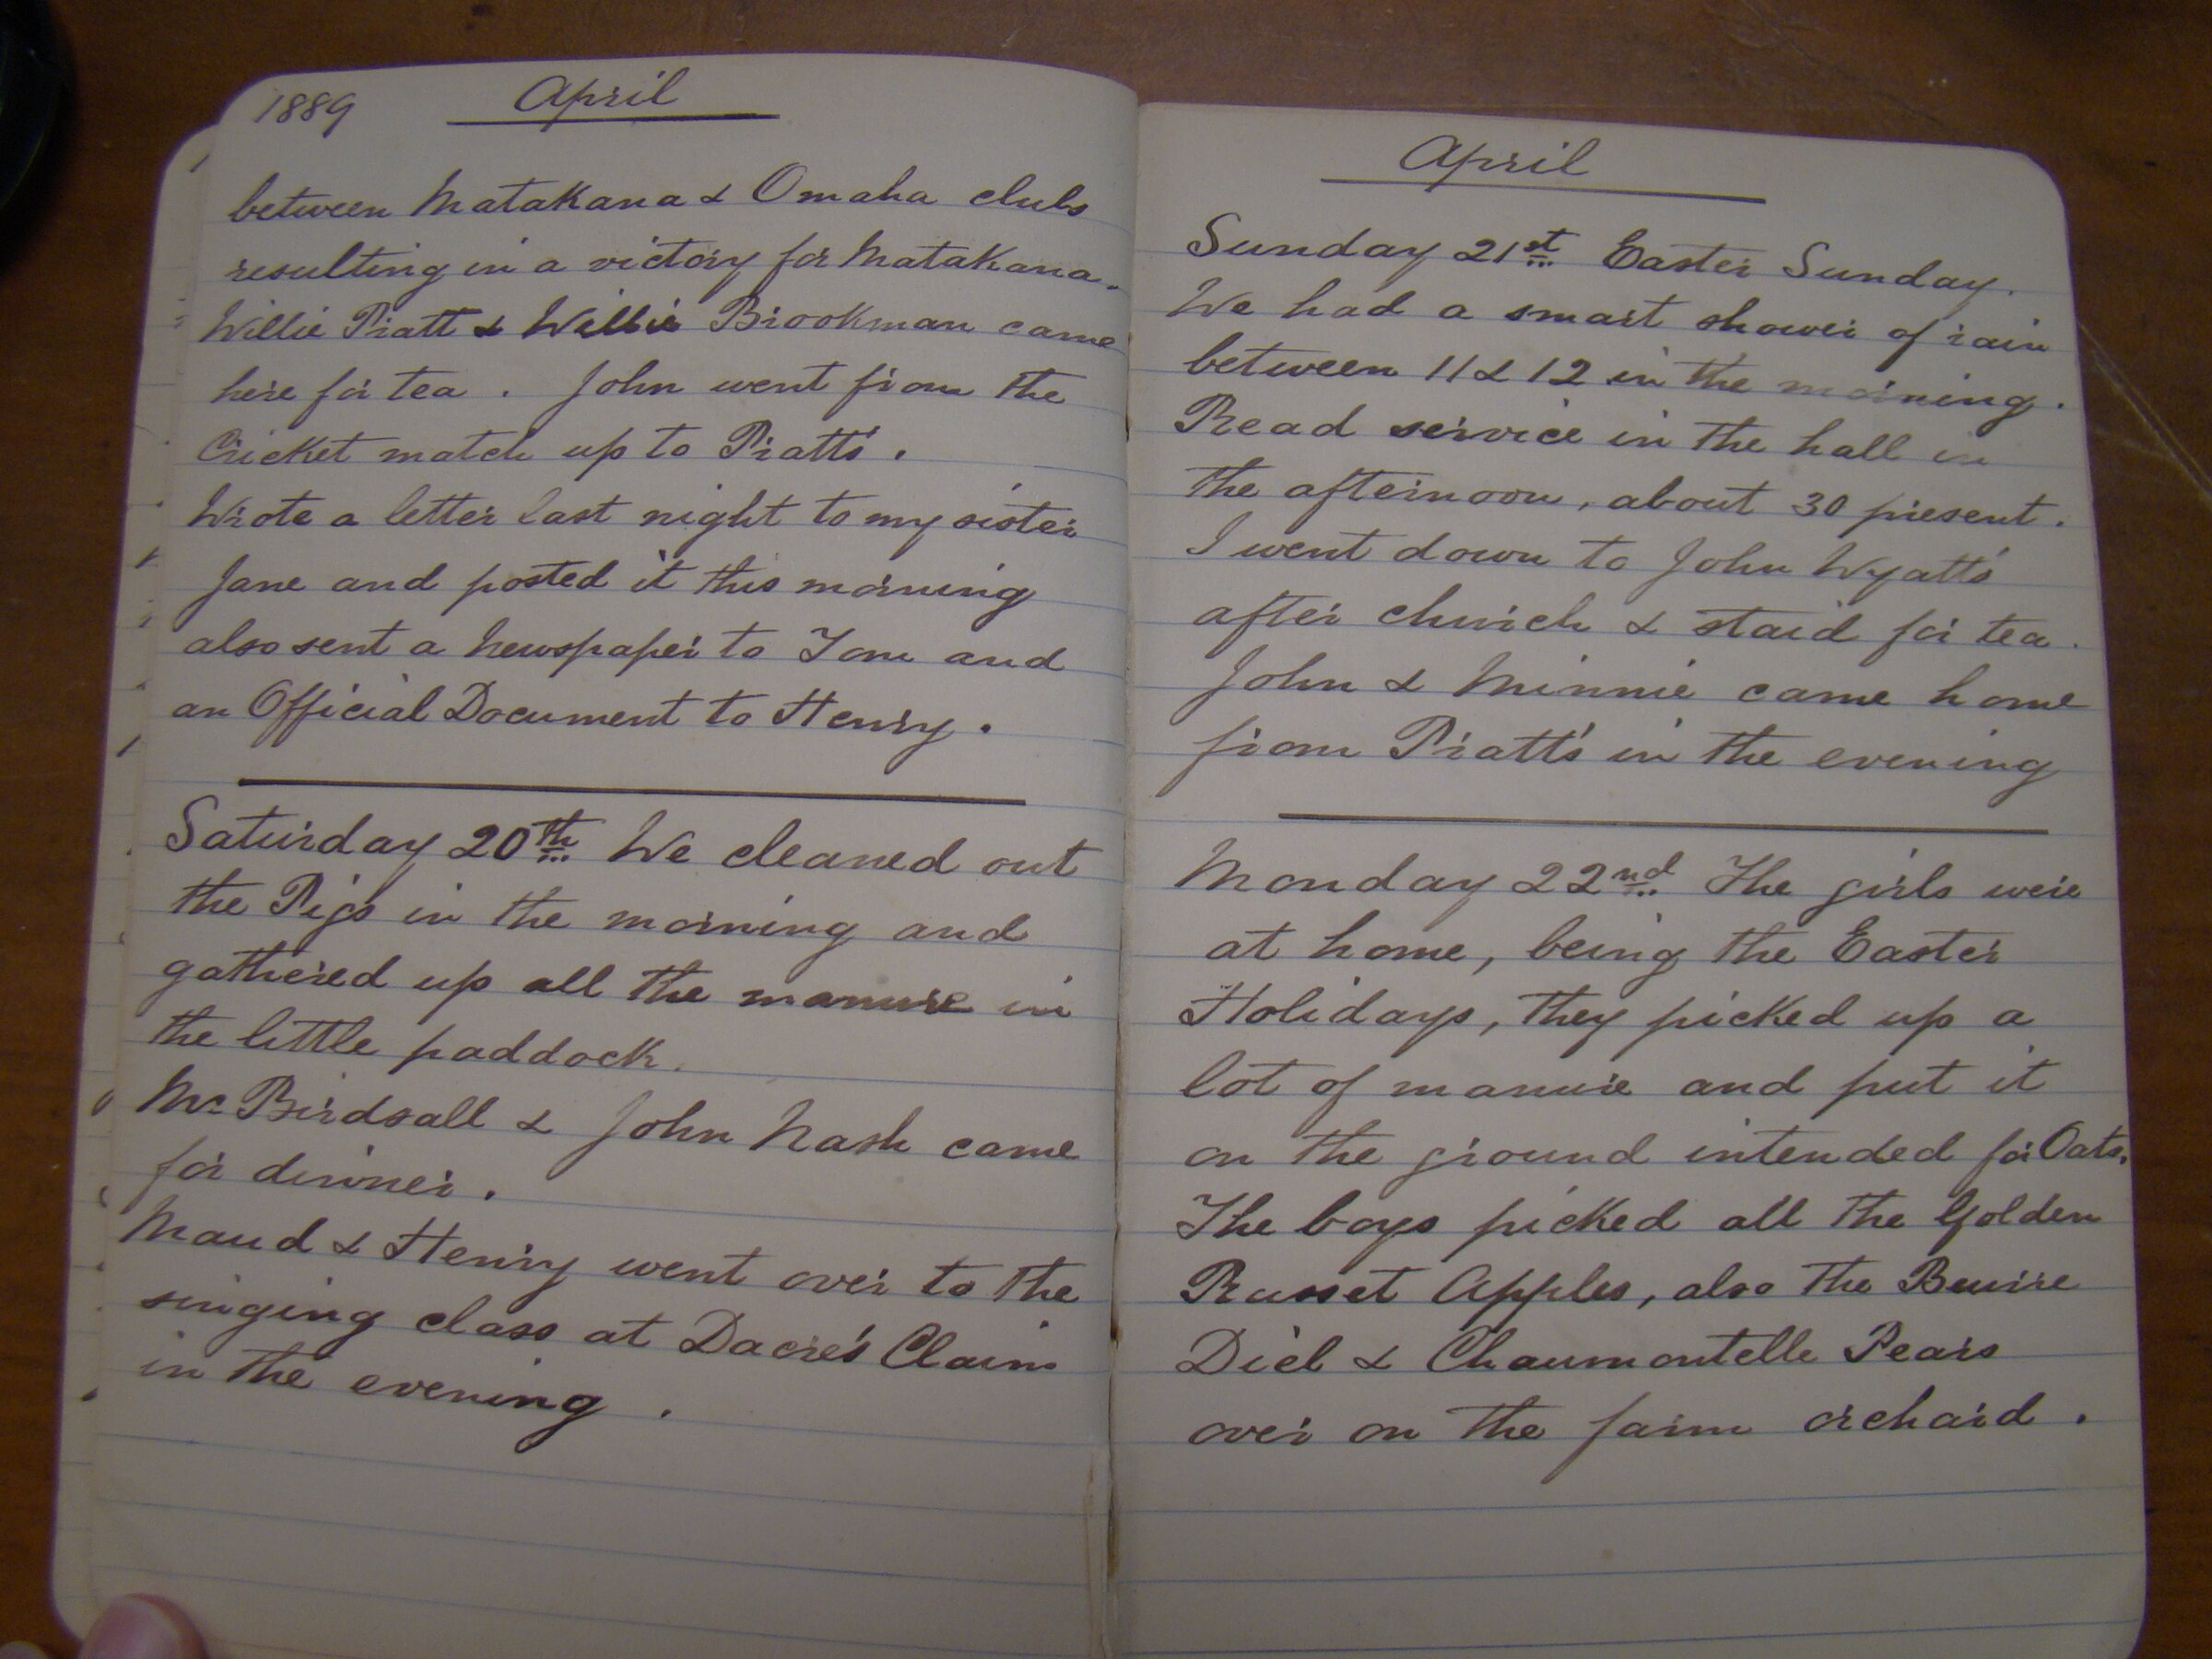 1889 April
between Matakana & Omaha clubs
resulting in a victory for Matakana.
Willie Pratt & Willie Brookman came
here for tea. John went from the
Cricket match up to Pratt's.
Wrote a letter last night to my sister
Jane and posted it this morning
also sent a Newspaper to Tom and
an Official Document to Henry.
Saturday 20th We cleaned out
the Pigs in the morning and
gathered up all the manure in
the little paddock.
Mr Birdsall & John Nash came
for dinner.
Maud & Henry went over to the
singing class at Dacre's Claim
in the evening.
April
Sunday 21st Easter Sunday.
We had a smart shower of rain
between 11 & 12 in the morning.
Read service in the hall in
the afternoon, about 30 present.
I went down to John Wyatt's
after church & staid for tea.
John & Minnie came home
from Pratt's in the evening
Monday 22nd The girls were
at home, being the Easter
Holidays, they picked up a
lot of manure and put it
on the ground intended for Oats.
The boys picked all the Golden
Russet Apples, also the Beurre
Diel & Chaumontelle Pears
over on the farm orchard.